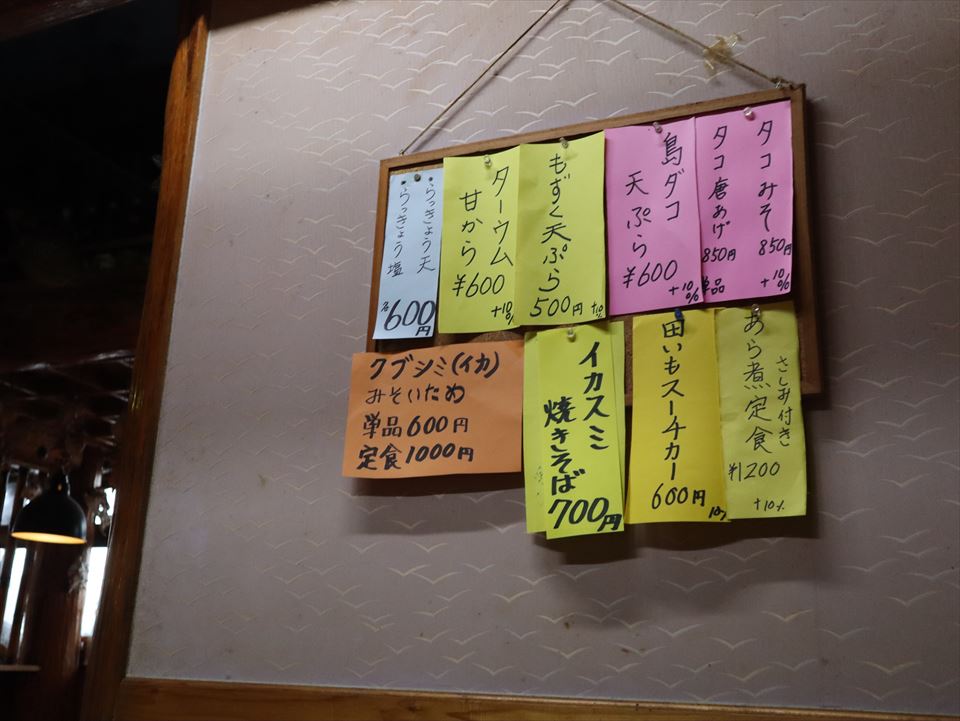 タコみそ
850円
+10%
タコ唐あげ
850円
単品
島ダコ
天ぷら
¥600
+10%
もずく天ぷら
500円
+10%
ターウム
甘から
¥600
+10%
らっきょう天
らっきょう塩
600円
クブシミ(イカ)
みそいため
単品600円
定食1000円
イカスミ
焼きそば
700円
田いもスーチカー
600円
10%
さしみ付き
あら煮定食
¥1200
+10%